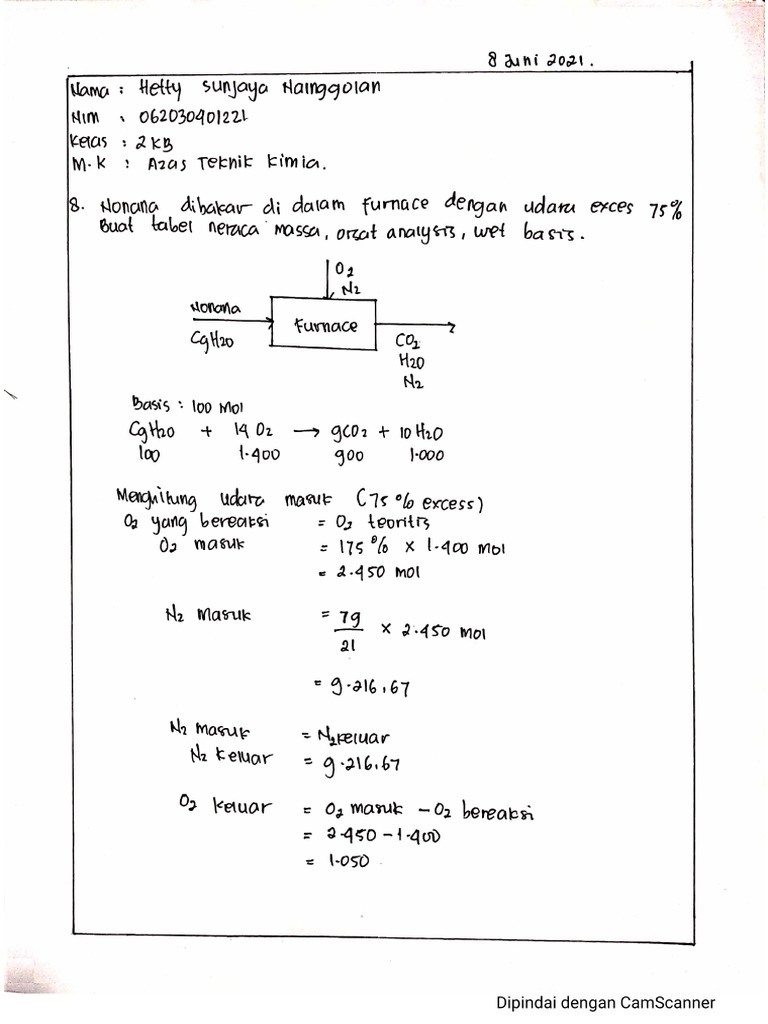 8 Juni 2021.
Nama : Hetty Sunjaya Nainggolan
Nim : 062030401221
Kelas : 2 KB
M.K : Azas Teknik Kimia.
8. Nonana dibakar di dalam furnace dengan udara exces 75%
Buat tabel neraca massa, orzat analysis, wet basis.
O2
N2
Nonana
C9H20
Furnace
CO2
H2O
N2
Basis : 100 Mol
C9H20 + 14 O2 → 9CO2 + 10 H2O
100 1.400 900 1.000
Menghitung udara masuk (75% excess)
O2 yang bereaksi = O2 teoritis
O2 masuk = 175% x 1.400 mol
= 2.450 mol
N2 Masuk = 79/21 x 2.450 mol
= 9.216,67
N2 masuk = N2 keluar
N2 keluar = 9.216,67
O2 keluar = O2 masuk - O2 bereaksi
= 2.450 - 1.400
= 1.050
Dipindai dengan CamScanner